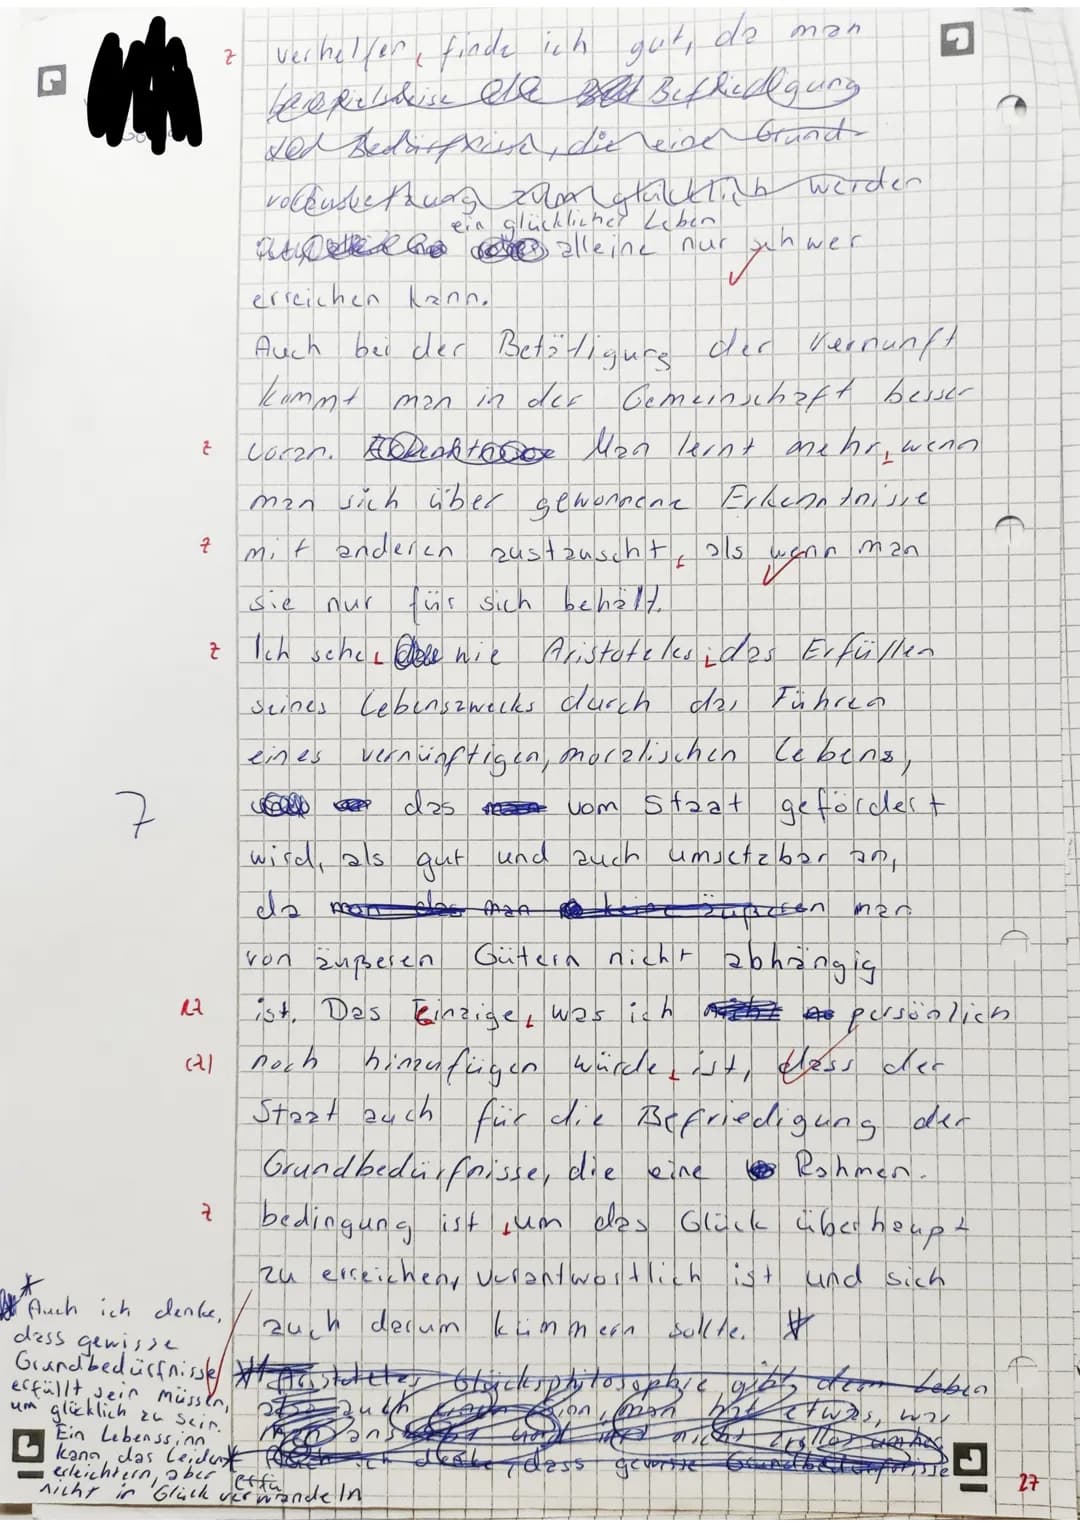 z verhelfen, finde ich gut, da man
beispielsweise die Befriedigung
von Bedürfnissen, die eine Grund
voraussetzung zum glücklich werden
ein glückliches Leben
alleine nur schwer
erreichen kann.
Auch bei der Betätigung der Vernunft
kommt man in der Gemeinschaft besser
z voran. Man lernt mehr, wenn
man sich über gewonnene Erkenntnisse
z mit anderen austauscht, als wenn man
sie nur für sich behält.
z Ich sehe, wie Aristoteles, das Erfüllen
seines Lebenszwecks durch das Führen
eines vernünftigen, moralischen Lebens,
7 das vom Staat gefördert
wird, als gut und auch umsetzbar an,
da man
von äußeren Gütern nicht abhängig
RZ ist. Das Einzige, was ich persönlich
(z) noch hinzufügen würde, ist, dass der
Staat auch für die Befriedigung der
Grundbedürfnisse, die eine Rahmen-
z bedingung ist, um das Glück überhaupt
zu erreichen, verantwortlich ist und sich
auch darum kümmern sollte. *
Aristoteles Glücksphilosophie gibt dem Leben
auch Sinn, man hat etwas, was
ich denke, dass gewisse Grundbedürfnisse
* Auch ich denke,
dass gewisse
Grundbedürfnisse
erfüllt sein müssen,
um glücklich zu sein.
Ein Lebenssinn
kann das Leiden
erleichtern, aber
nicht in Glück verwandeln
27